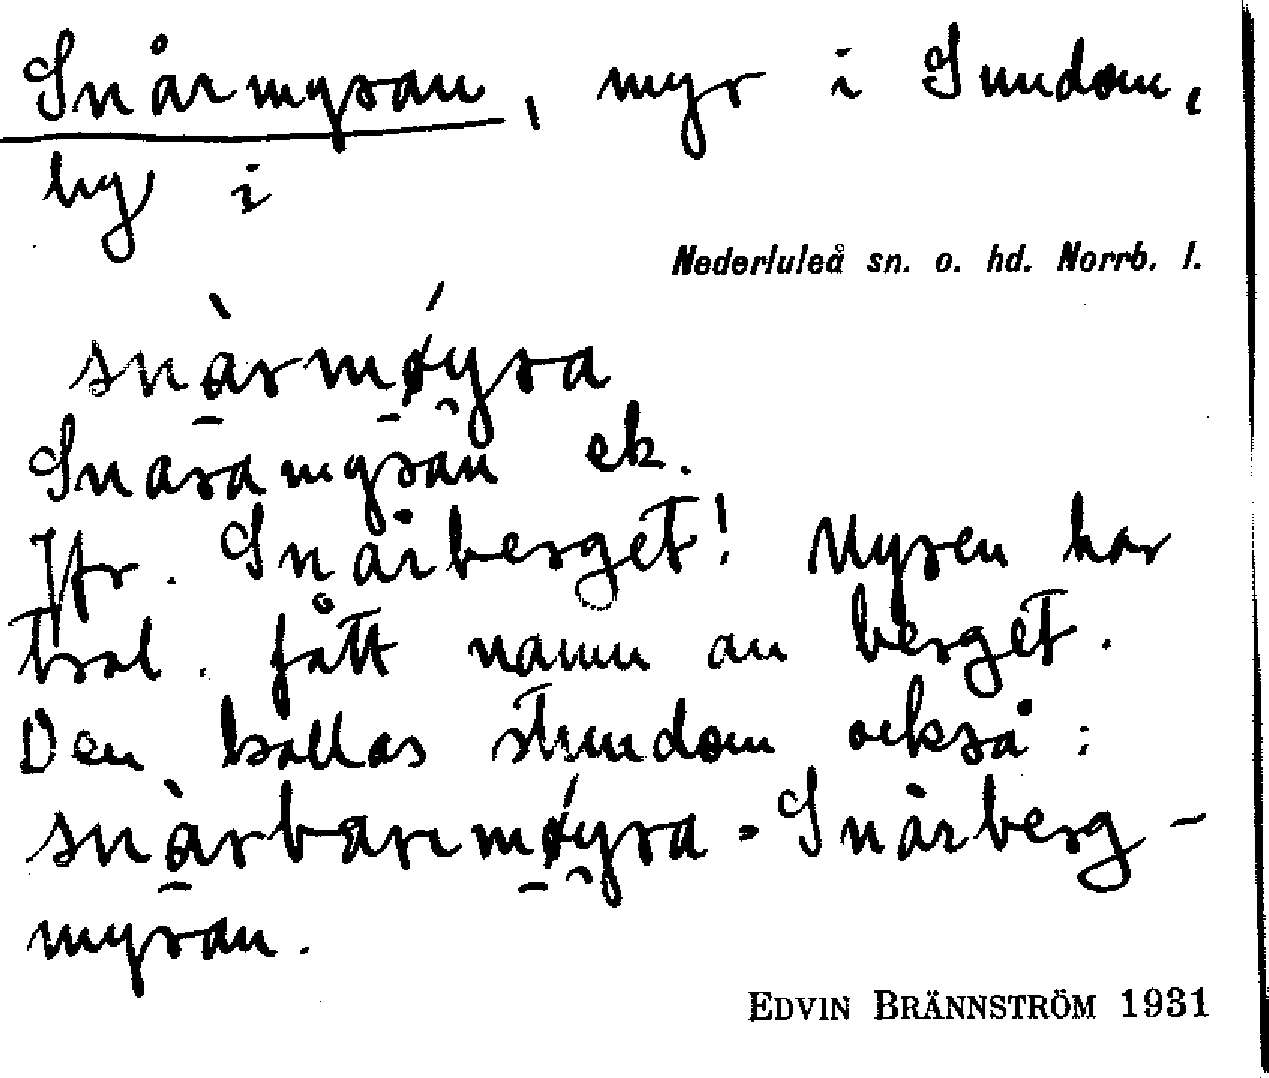 Snårmyran, myr i Sundom,
by i
Nederluleå sn. o. hd. Norrb. l.
snàrmǿyra
Snaramyran ek.
Jfr. Snårberget! Myren har
trol. fått namn av berget.
Den kallas stundom också:
snàrbarımǿyra = Snårberg-
myran.
EDVIN BRÄNNSTRÖM 1931